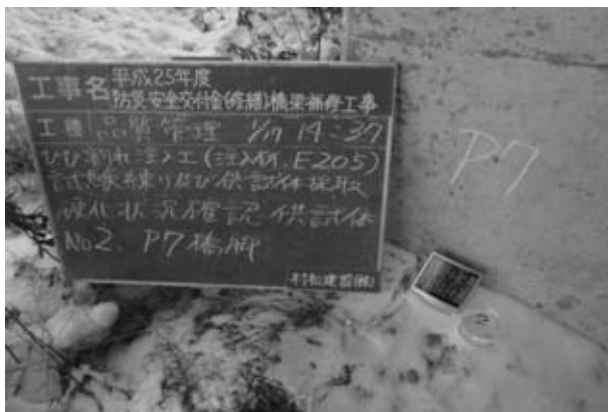 工事名 平成25年度
防災・安全交付金(修繕)橋梁補修工事
工種 品質管理 1/17 14:37
ひび割れ注入工(注入材.E205)
試験練り及び供試体採取
硬化状況確認 供試体
No2. P7橋脚
村松建設(株)
P7
2